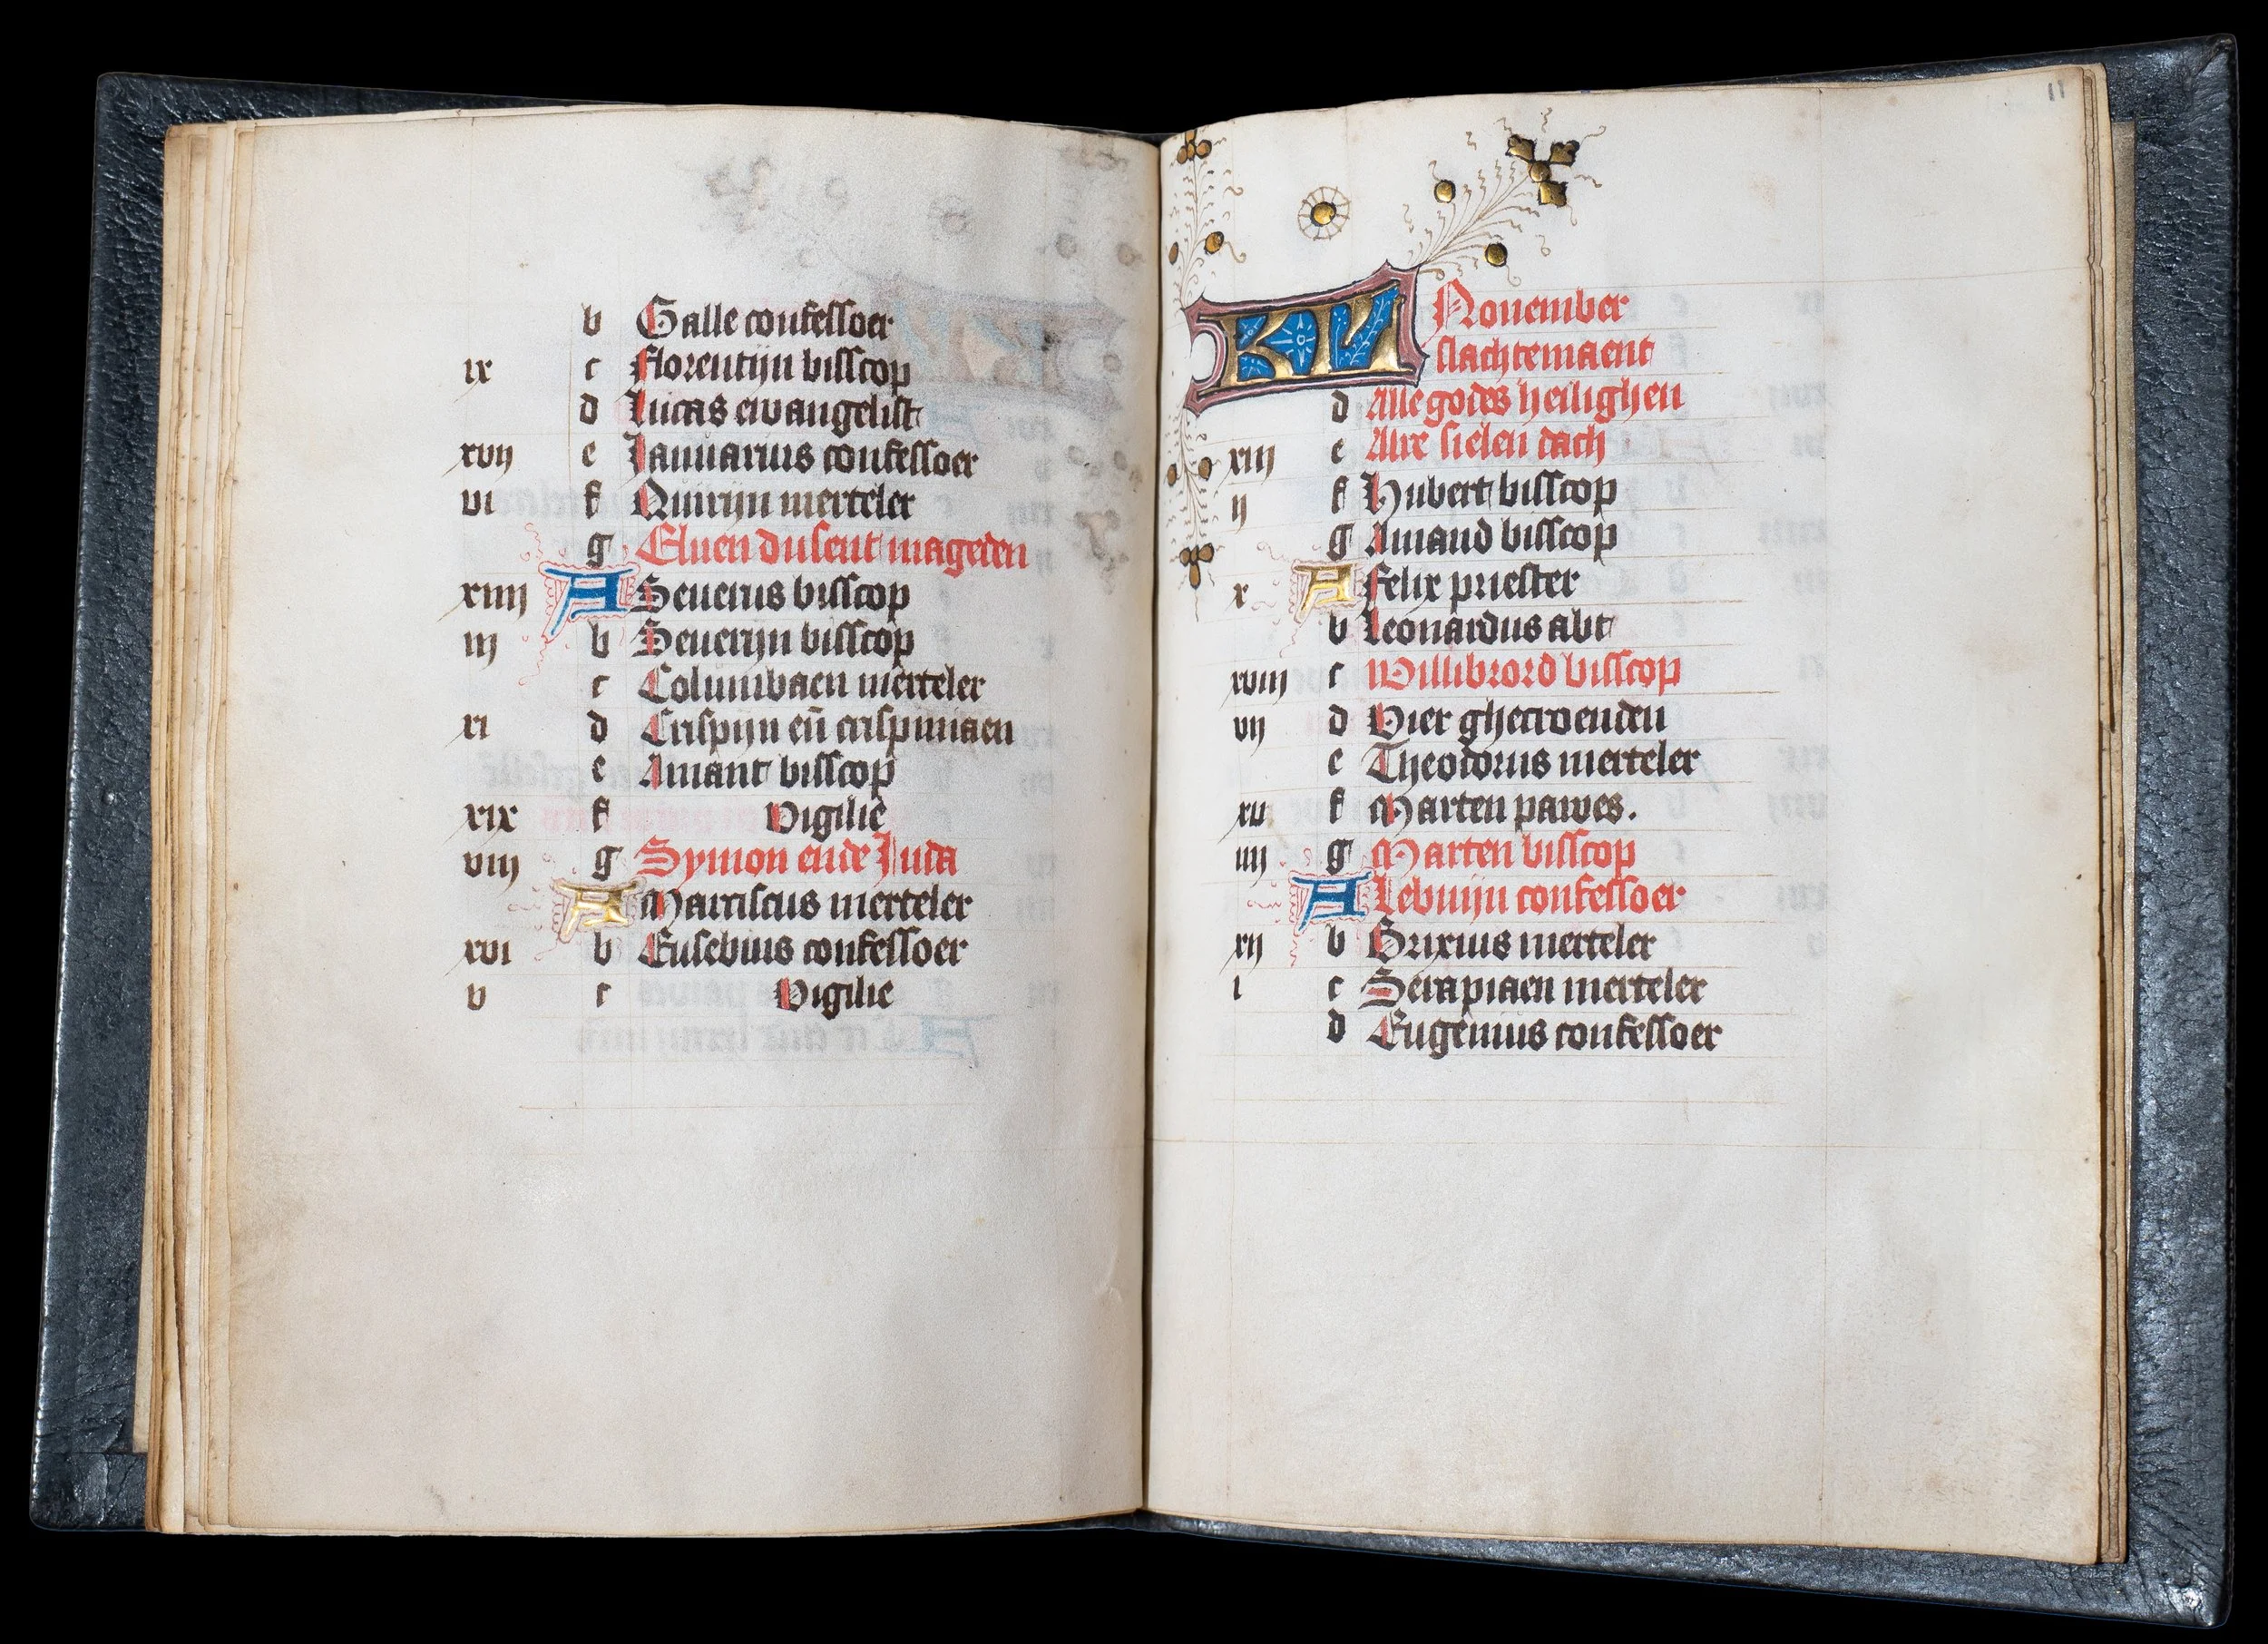 b Galle confessoer
ix c Florentijn bisscop
d Lucas ewangelist
xvij e Januarius confessoer
vi f Quirijn merteler
g Eluen dusent mageden
xiiij A Seuerus bisscop
iij b Seuerijn bisscop
c Columbaen merteler
xi d Crispijn eñ crispiniaen
e Amant bisscop
xix f Vigilie
viij g Symon ende Juda
A Narciscus merteler
xvi b Eusebius confessoer
v c Vigilie
11
KL Nouember
slachtemaent
d Alle godes heilighen
xiij e Alre sielen dach
ij f Hubert bisscop
g Amand bisscop
x A Felix priester
b Leonardus abt
xviij c Willibrord bisscop
vij d Vier ghecroenden
e Theodorus merteler
xv f Marten pawes.
iiij g Marten bisscop
A Lebuijn confessoer
xij b Brixius merteler
i c Serapiaen merteler
d Eugenius confessoer